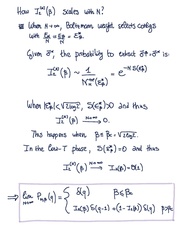 How I₂⁽ᴺ⁾(β) scales with N?
When N→∞, Boltzmann weight selects configs
with
Given σ⃗ʷ, the probability to extract σ⃗ʷ = σ⃗ʷ is:
I₂⁽ᴺ⁾(β) ~ 1 /
When < √(2log2), S( ) > 0 and thus
I₂⁽ᴺ⁾(β) → 0.
N→∞
This happens when β ≤ βc = √(2log2).
In the low-T phase, S( ) = 0 and thus
I₂⁽ᴺ⁾(β) → I₂(β) = O(1)
N→∞
⇒ lim P_{N,β}(q) = { δ(q) β ≤ βc
N→∞
I₂(β) δ(q-1) + (1 - I₂(β)) δ(q) β > βc